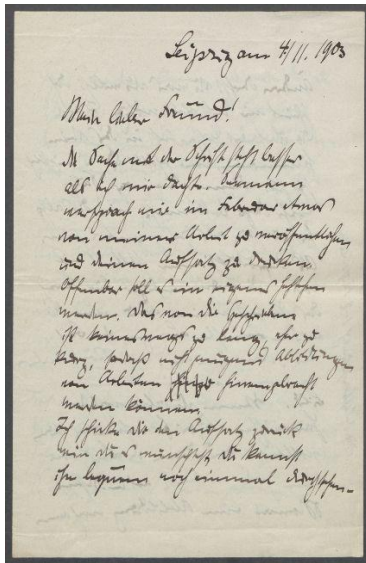 Leipzig am 4/11. 1903
Mein lieber Freund!
Die Sache mit der Schrift steht besser
als ich mir dachte. Seemann
versprach mir im Februar etwas
von meiner Arbeit zu veröffentlichen
und deinen Aufsatz zu drucken
Offenbar soll es ein eigenes
werden. Das von dir Geschriebene
ist keineswegs zu lang, eher zu
kurz, sodaß nicht genügend Abbildungen
von Arbeiten hineingebracht
werden können.
Ich schicke dir den Aufsatz zurück
wie du es wünschst. Du kannst
ihn bequem noch einmal durchsehen-